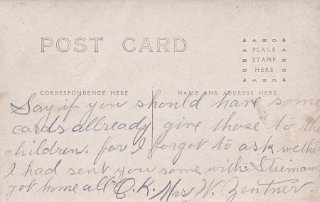 POST CARD
PLACE
STAMP
HERE
CORRESPONDENCE HERE
NAME AND ADDRESS HERE
Say if you should have some
cards allready give those to the
children. for I forgot to ask wether
I had sent you some with Stiemans
got home all O.K. Mrs W. Zentner.